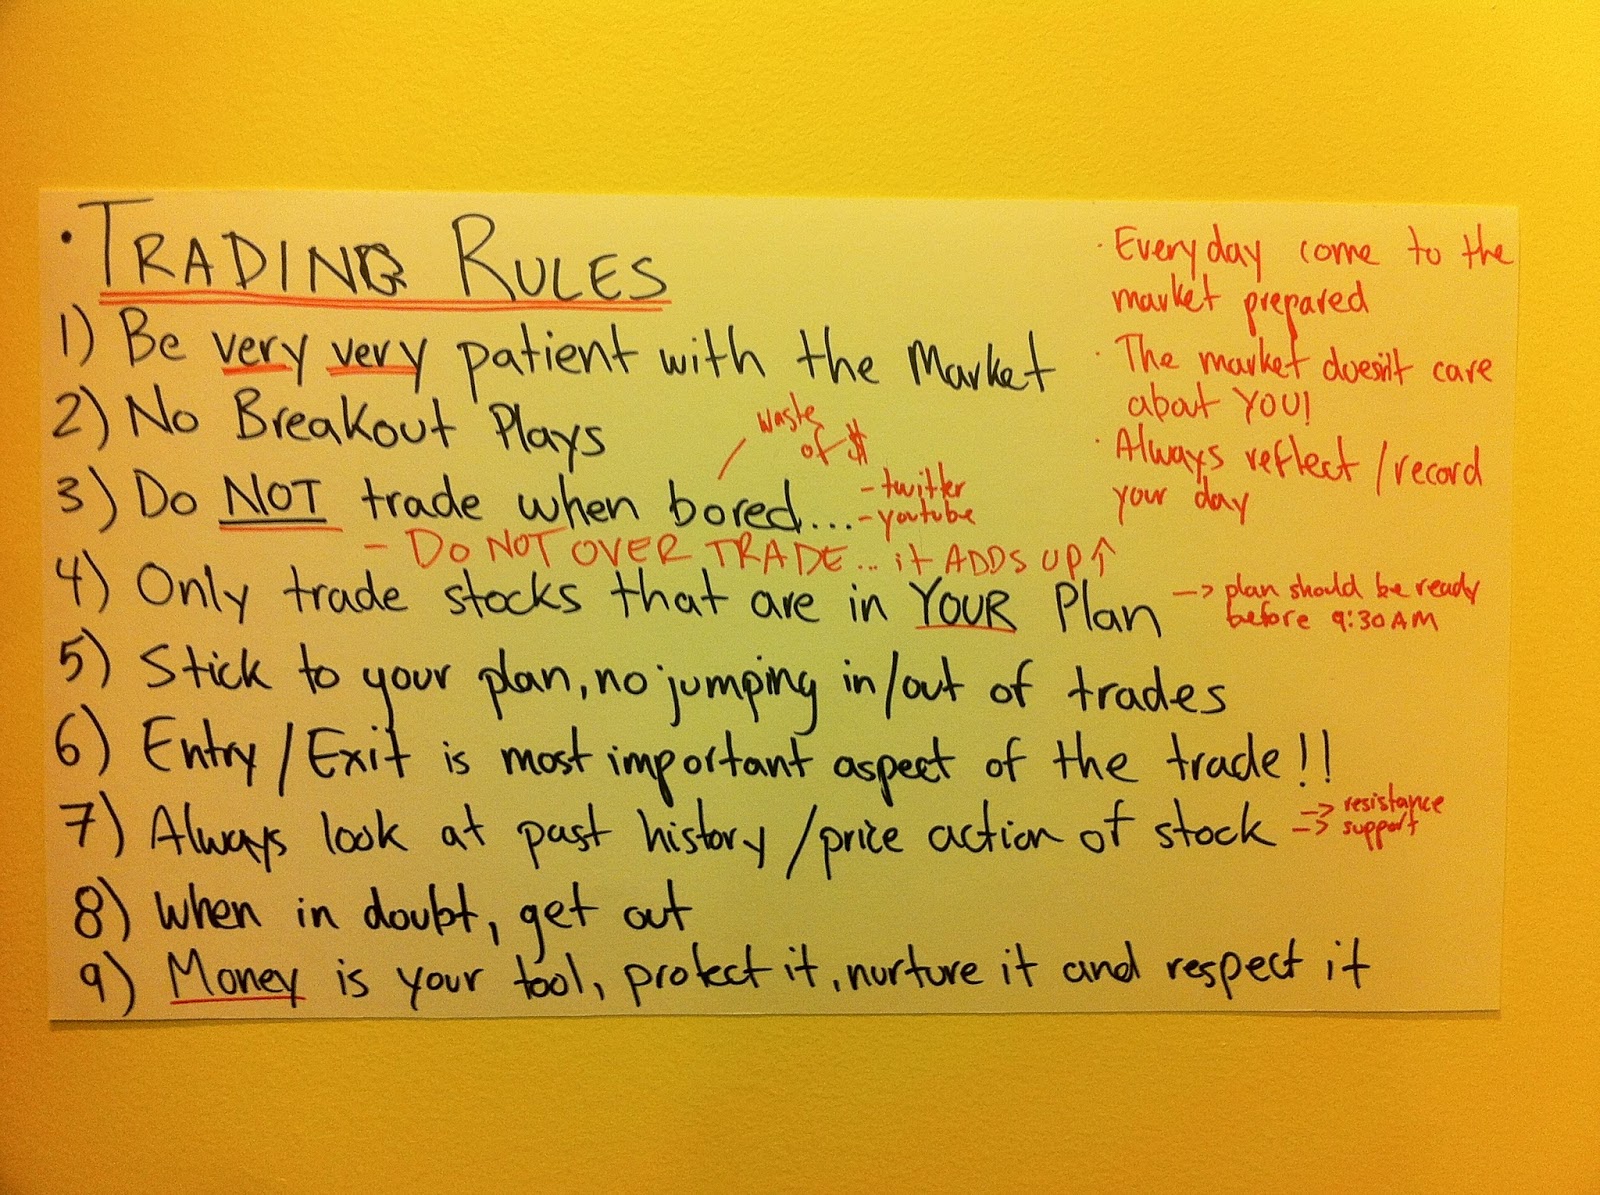 · TRADING RULES
1) Be very very patient with the Market
2) No Breakout Plays
waste
of $
3) Do NOT trade when bored...
- twitter
- youtube
- DO NOT OVER TRADE... it ADDS UP ↑
4) Only trade stocks that are in YOUR Plan
-> plan should be ready
before 9:30AM
5) Stick to your plan, no jumping in/out of trades
6) Entry/Exit is most important aspect of the trade!!
7) Always look at past history/price action of stock
-> resistance
-> support
8) When in doubt, get out
9) Money is your tool, protect it, nurture it and respect it
· Everyday come to the
market prepared
· The market doesn't care
about YOU!
· Always reflect/record
your day